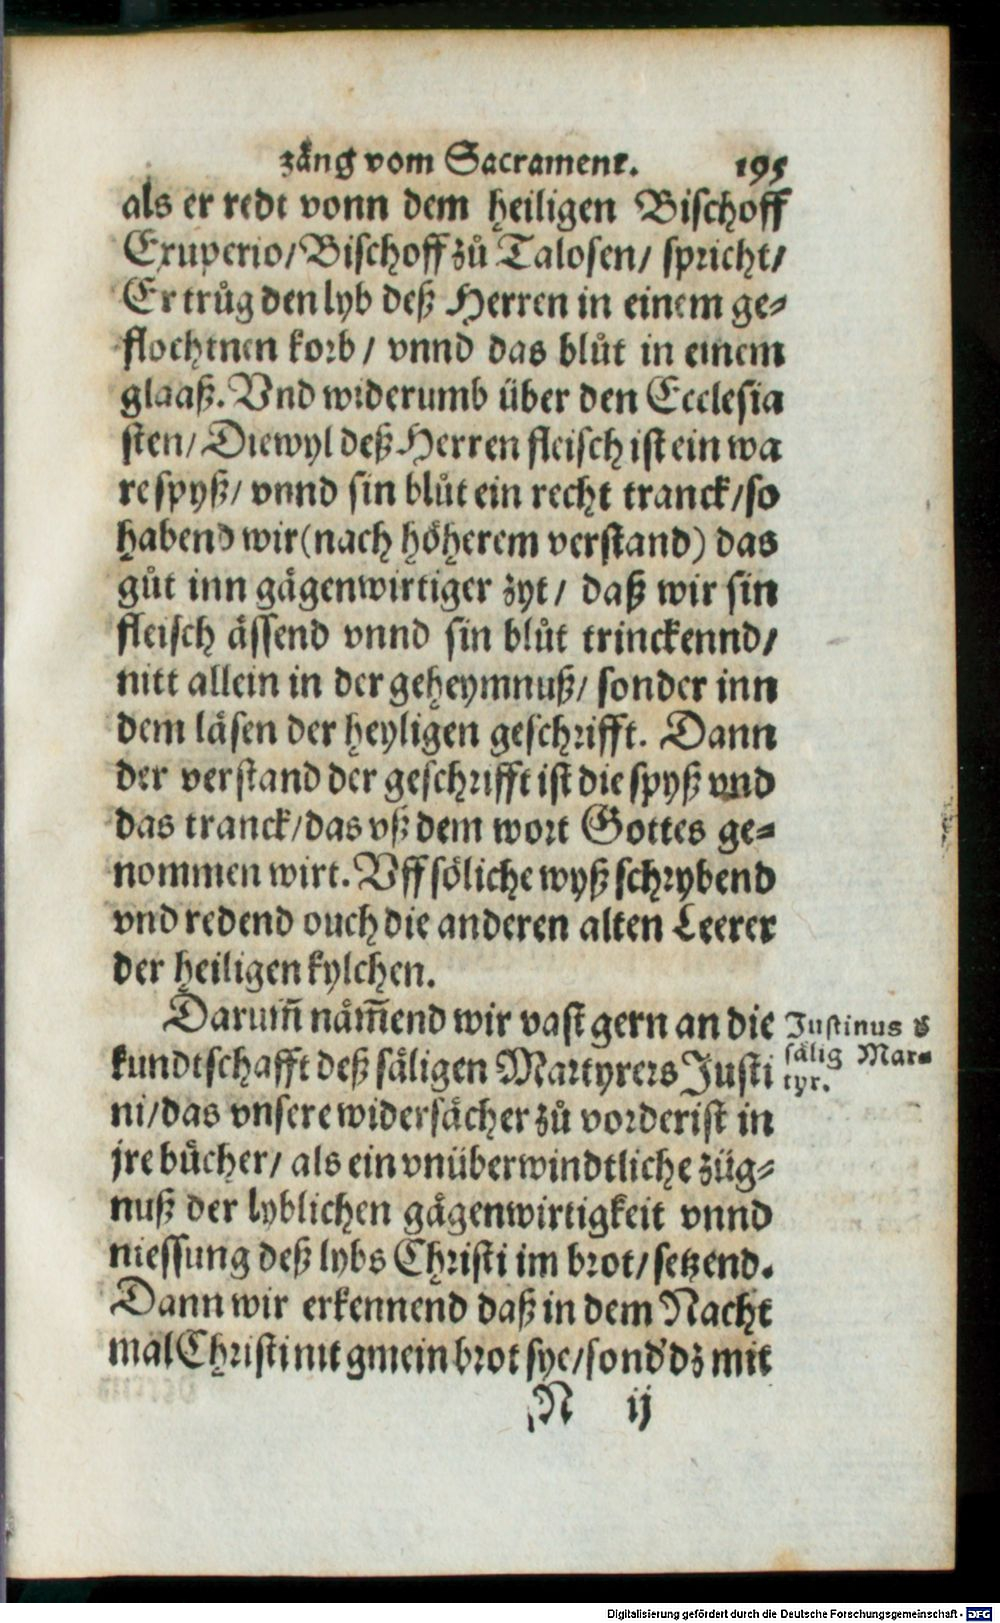 zäng vom Sacrament. 195
als er redt vonn dem heiligen Bischoff
Exuperio/ Bischoff zů Talosen/ spricht/
Er trůg den lyb deß Herren in einem ge⸗
flochtnen korb / vnnd das blůt in einem
glaaß. Vnd widerumb über den Ecclesia
sten/ Diewyl deß Herren fleisch ist ein wa
re spyß/ vnnd sin blůt ein recht tranck/ so
habend wir (nach höherem verstand) das
gůt inn gägenwirtiger zyt/ daß wir sin
fleisch ässend vnnd sin blůt trinckennd/
nitt allein in der geheymnuß/ sonder inn
dem läsen der heyligen geschrifft. Dann
der verstand der geschrifft ist die spyß vnd
das tranck/ das vß dem wort Gottes ge⸗
nommen wirt. Vff söliche wyß schrybend
vnd redend ouch die anderen alten Leerer
der heiligen kylchen.
Darum̃ näm̃end wir vast gern an die
kundtschafft deß säligen Martyrers Justi
ni/ das vnsere widersächer zů vorderist in
jre bůcher/ als ein vnüberwindtliche züg⸗
nuß der lyblichen gägenwirtigkeit vnnd
niessung deß lybs Christi im brot/ setzend.
Dann wir erkennend daß in dem Nacht
mal Christi nit gmein brot sye/ sond' dz mit
Justinus d'
sälig Mar⸗
tyr.
N ij
Digitalisierung gefördert durch die Deutsche Forschungsgemeinschaft - DFG